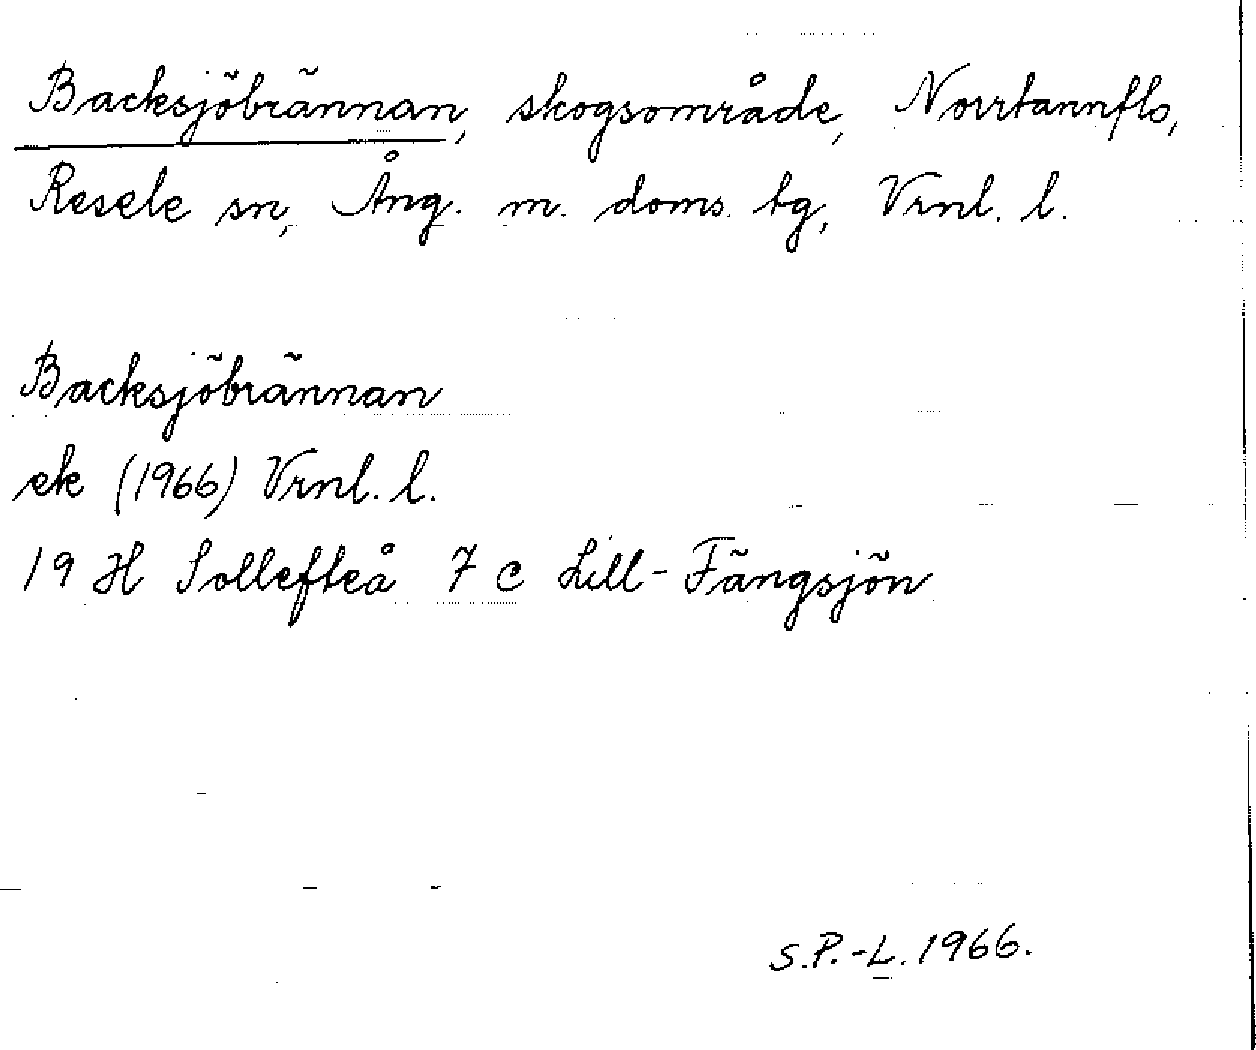 Backsjöbrännan, skogsområde, Norrtannflo,
Resele sn, Ång. m. doms. tg, Vrnl. l.
Backsjöbrännan
ek (1966) Vrnl. l.
19 H Sollefteå 7 c Lill-Fängsjön
S.P.-L. 1966.